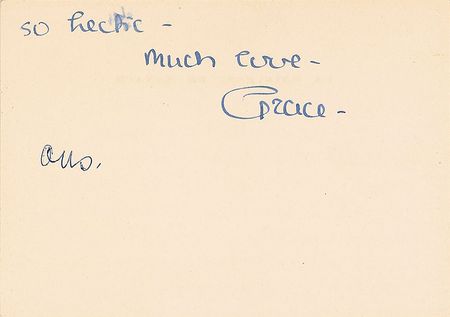 so hectic -
Much love -
Grace -
Ans.